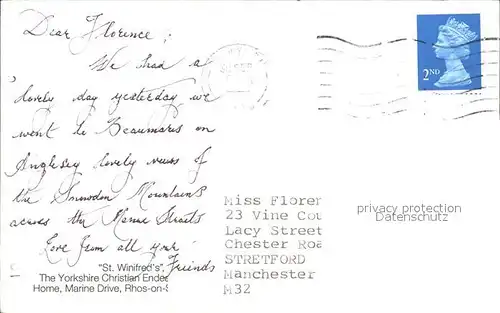 Dear Florence;
We had a
lovely day yesterday we
went to Beaumaris on
Anglesey lovely views of
the Snowdon Mountains
across the Menai Straits
Love from all your
Friends
"St. Winifred's",
The Yorkshire Christian Endea
Home, Marine Drive, Rhos-on-S
2ND
Miss Floren
23 Vine Cou
Lacy Street
Chester Roa
STRETFORD
Manchester
M32
privacy protection
Datenschutz